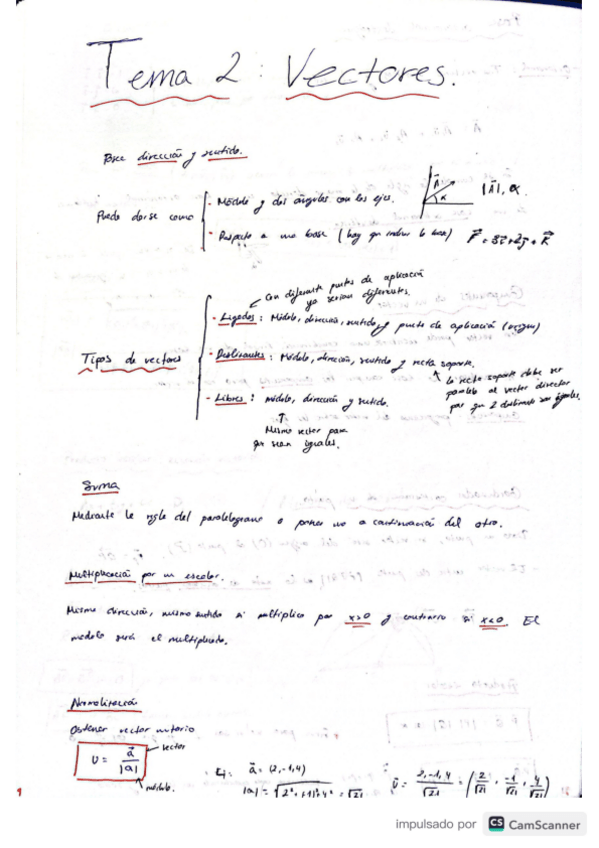 Tema 2: Vectores.
Posee dirección y sentido.
Puede darse como
- Módulo y dos ángulos con los ejes.
A α
|A|, α
- Respecto a una base (hay que indicar la base) F = 3i+2j+K
Con diferente puntos de aplicación
ya serian diferentes.
Tipos de vectores
- Ligados: Módulo, dirección, sentido y punto de aplicación (origen)
- Deslizantes: Módulo, dirección, sentido y recta soporte.
la recta soporte debe ser
paralela al vector director
para que 2 deslizante sean iguales.
- Libres: módulo, dirección y sentido.
Mismo vector para
que sean iguales.
Suma
Mediante la regla del paralelogramo o poner uno a continuación del otro.
Multiplicación por un escalar.
Misma dirección, mismo sentido si multiplica por x>0 y contrario si x<0. El
modulo será el multiplicado.
Normalización
Obtener vector unitario
U = a/|a|
vector
módulo.
Ej: a = (2,-1,4)
|a| = √2²+(-1)²+4² = √21
U = 2,-1,4/√21 = (2/√21, -1/√21, 4/√21)
1
impulsado por CS CamScanner